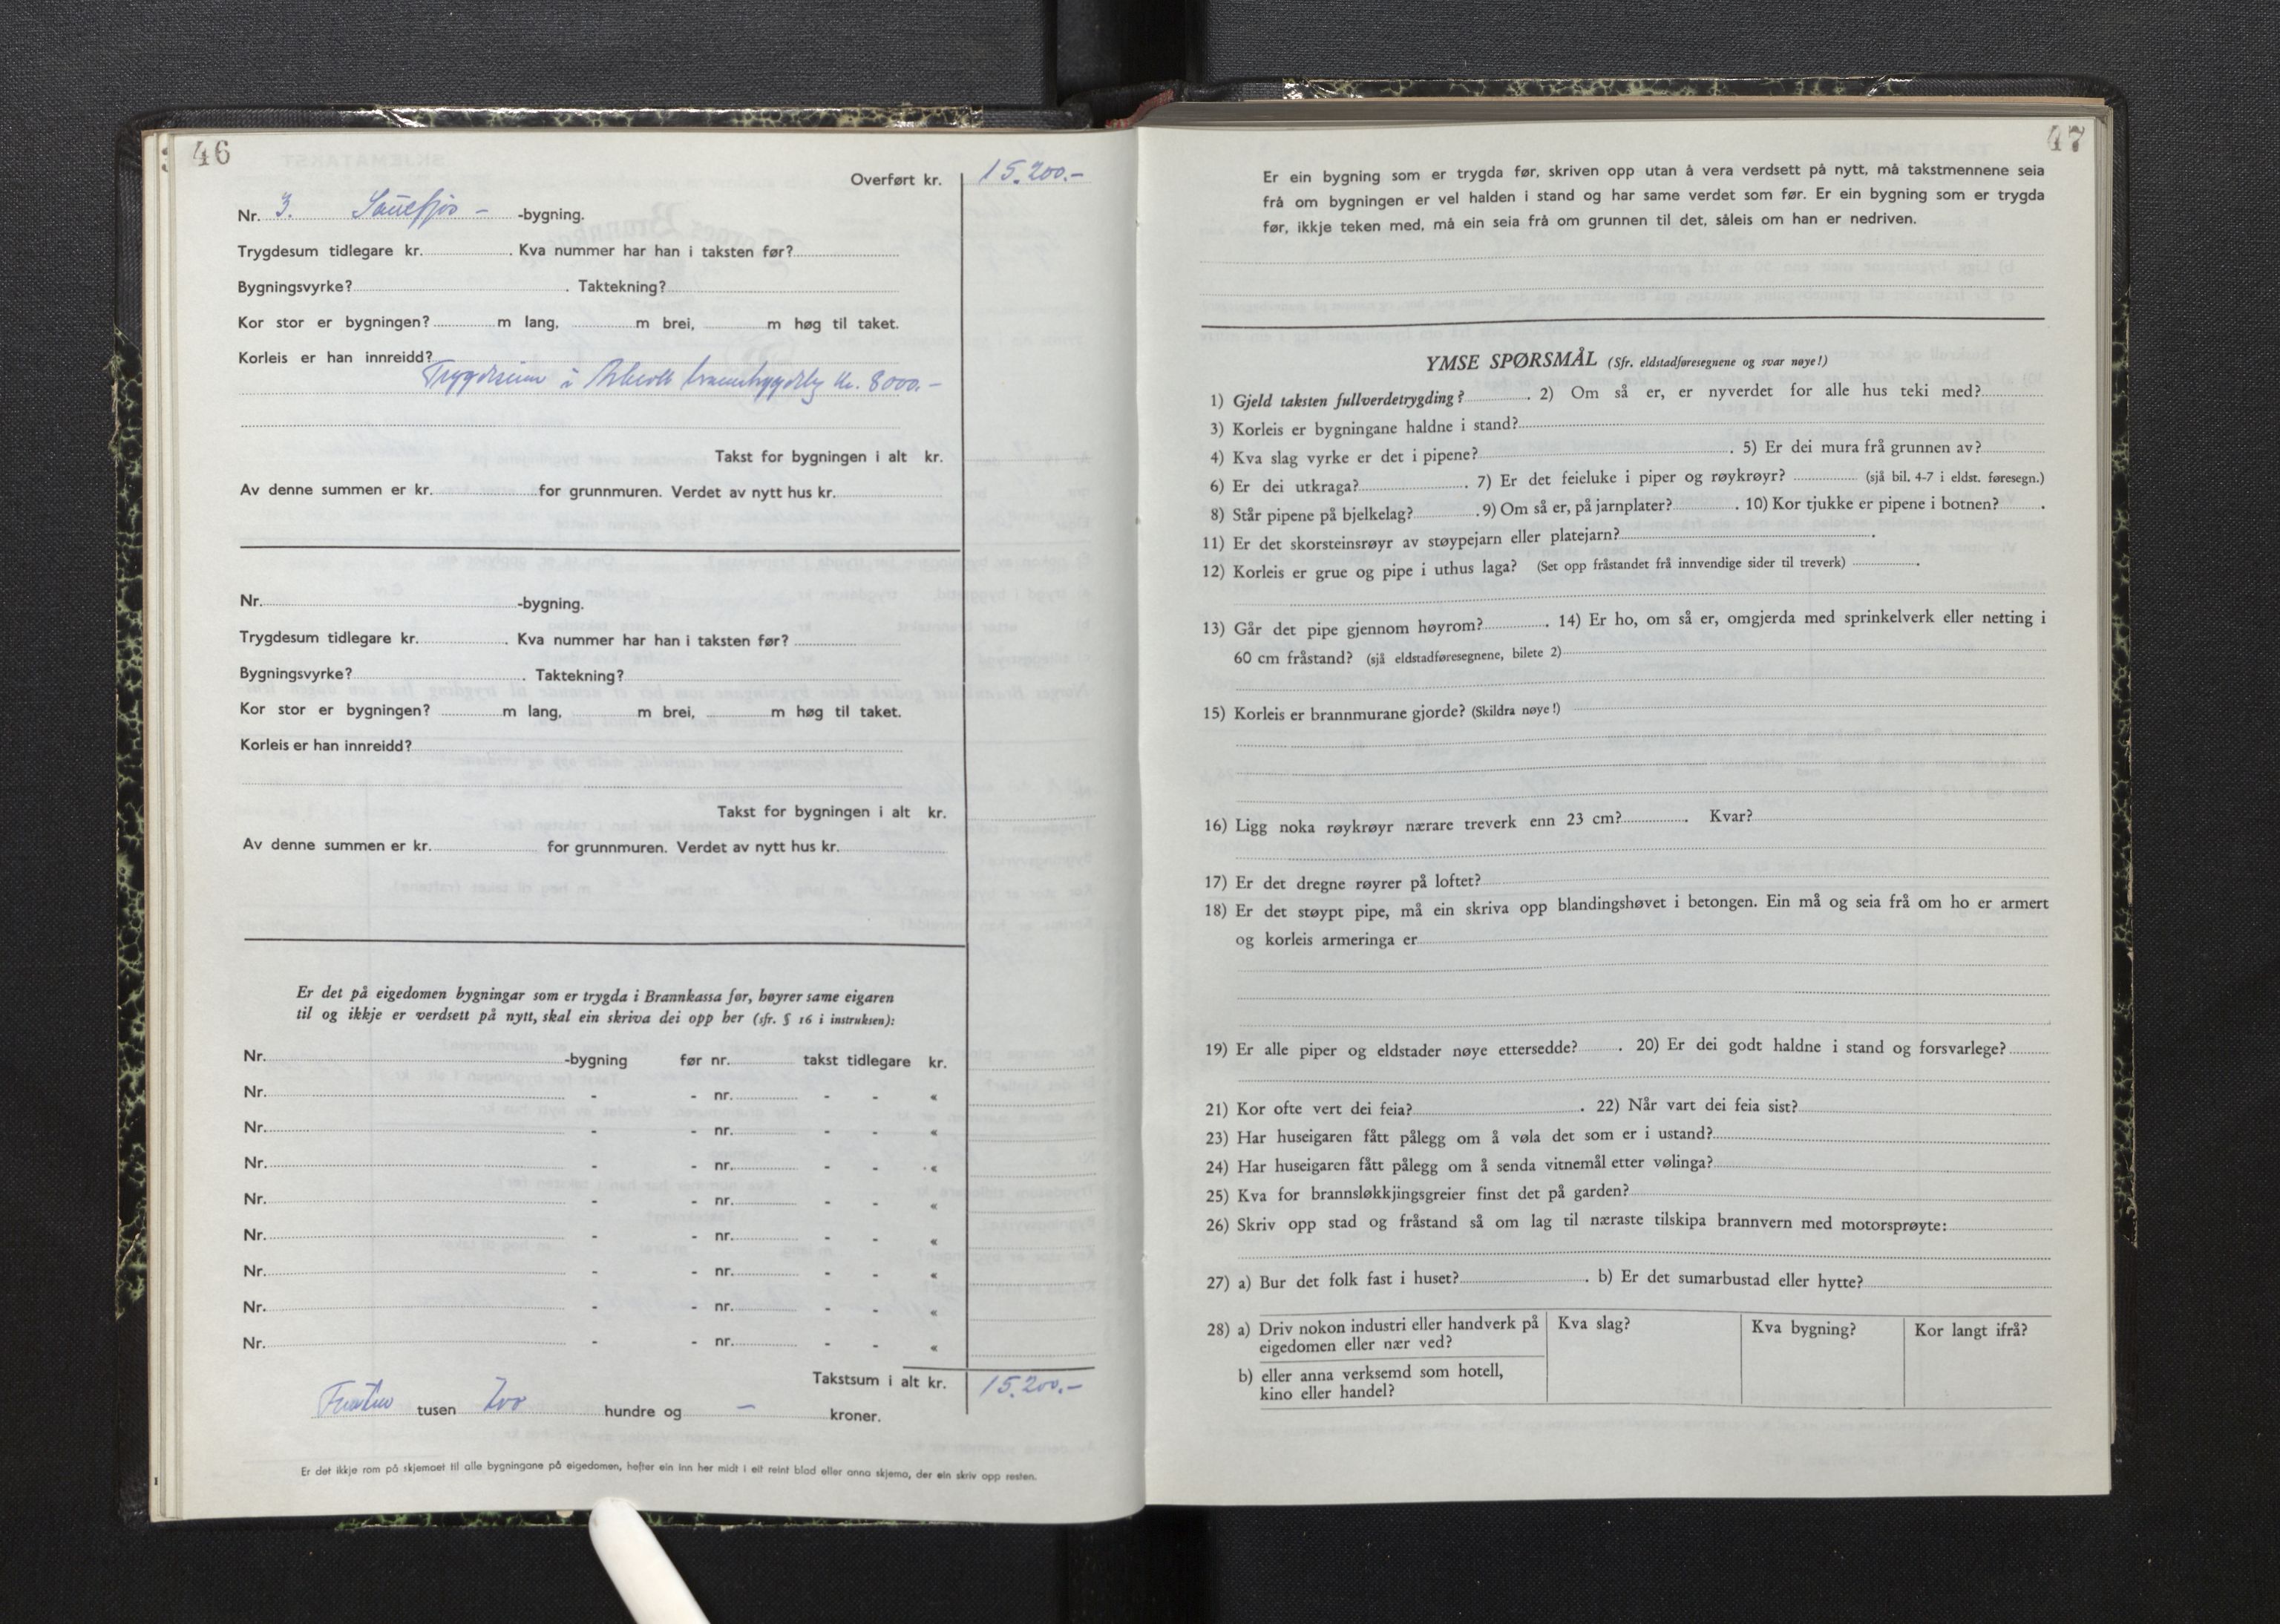 46
Overført kr. 15.200.-
Nr. 3. Sauefjøs - -bygning.
Trygdesum tidlegare kr. . Kva nummer har han i taksten før?
Bygningsvyrke? . Taktekning?
Kor stor er bygningen? m lang, m brei, m høg til taket.
Korleis er han innreidd?
Trygdesum i kr. 8000.-
Takst for bygningen i alt kr.
Av denne summen er kr. for grunnmuren. Verdet av nytt hus kr.
Nr. -bygning.
Trygdesum tidlegare kr. . Kva nummer har han i taksten før?
Bygningsvyrke? . Taktekning?
Kor stor er bygningen? m lang, m brei, m høg til taket.
Korleis er han innreidd?
Takst for bygningen i alt kr.
Av denne summen er kr. for grunnmuren. Verdet av nytt hus kr.
Er det på eigedomen bygningar som er trygda i Brannkassa før, høyrer same eigaren
til og ikkje er verdsett på nytt, skal ein skriva dei opp her (sfr. § 16 i instruksen):
Nr. -bygning før nr. takst tidlegare kr.
Nr. - - nr. - - «
Nr. - - nr. - - «
Nr. - - nr. - - «
Nr. - - nr. - - «
Nr. - - nr. - - «
Nr. - - nr. - - «
Nr. - - nr. - - «
Nr. - - nr. - - «
Takstsum i alt kr. 15.200.-
Femten tusen to hundre og - kroner.
Er det ikkje rom på skjemaet til alle bygningane på eigedomen, hefter ein inn her midt i eit reint blad eller anna skjema, der ein skriv opp resten.
47
Er ein bygning som er trygda før, skriven opp utan å vera verdsett på nytt, må takstmennene seia
frå om bygningen er vel halden i stand og har same verdet som før. Er ein bygning som er trygda
før, ikkje teken med, må ein seia frå om grunnen til det, såleis om han er nedriven.
YMSE SPØRSMÅL (Sfr. eldstadføresegnene og svar nøye!)
1) Gjeld taksten fullverdetrygding? . 2) Om så er, er nyverdet for alle hus teki med?
3) Korleis er bygningane haldne i stand?
4) Kva slag vyrke er det i pipene? . 5) Er dei mura frå grunnen av?
6) Er dei utkraga? . 7) Er det feieluke i piper og røykrøyr? (sjå bil. 4-7 i eldst. føresegn.)
8) Står pipene på bjelkelag? . 9) Om så er, på jarnplater? . 10) Kor tjukke er pipene i botnen? .
11) Er det skorsteinsrøyr av støypejarn eller platejarn? .
12) Korleis er grue og pipe i uthus laga? (Set opp fråstandet frå innvendige sider til treverk) .
13) Går det pipe gjennom høyrom? . 14) Er ho, om så er, omgjerda med sprinkelverk eller netting i
60 cm fråstand? (sjå eldstadføresegnene, bilete 2)
15) Korleis er brannmurane gjorde? (Skildra nøye!)
16) Ligg noka røykrøyr nærare treverk enn 23 cm? . Kvar?
17) Er det dregne røyrer på loftet?
18) Er det støypt pipe, må ein skriva opp blandingshøvet i betongen. Ein må og seia frå om ho er armert
og korleis armeringa er
19) Er alle piper og eldstader nøye ettersedde? . 20) Er dei godt haldne i stand og forsvarlege?
21) Kor ofte vert dei feia? . 22) Når vart dei feia sist?
23) Har huseigaren fått pålegg om å vøla det som er i ustand?
24) Har huseigaren fått pålegg om å senda vitnemål etter vølinga?
25) Kva for brannsløkkjingsgreier finst det på garden?
26) Skriv opp stad og fråstand så om lag til næraste tilskipa brannvern med motorsprøyte:
27) a) Bur det folk fast i huset? . b) Er det sumarbustad eller hytte?
28) a) Driv nokon industri eller handverk på Kva slag? Kva bygning? Kor langt ifrå?
eigedomen eller nær ved?
b) eller anna verksemd som hotell,
kino eller handel?